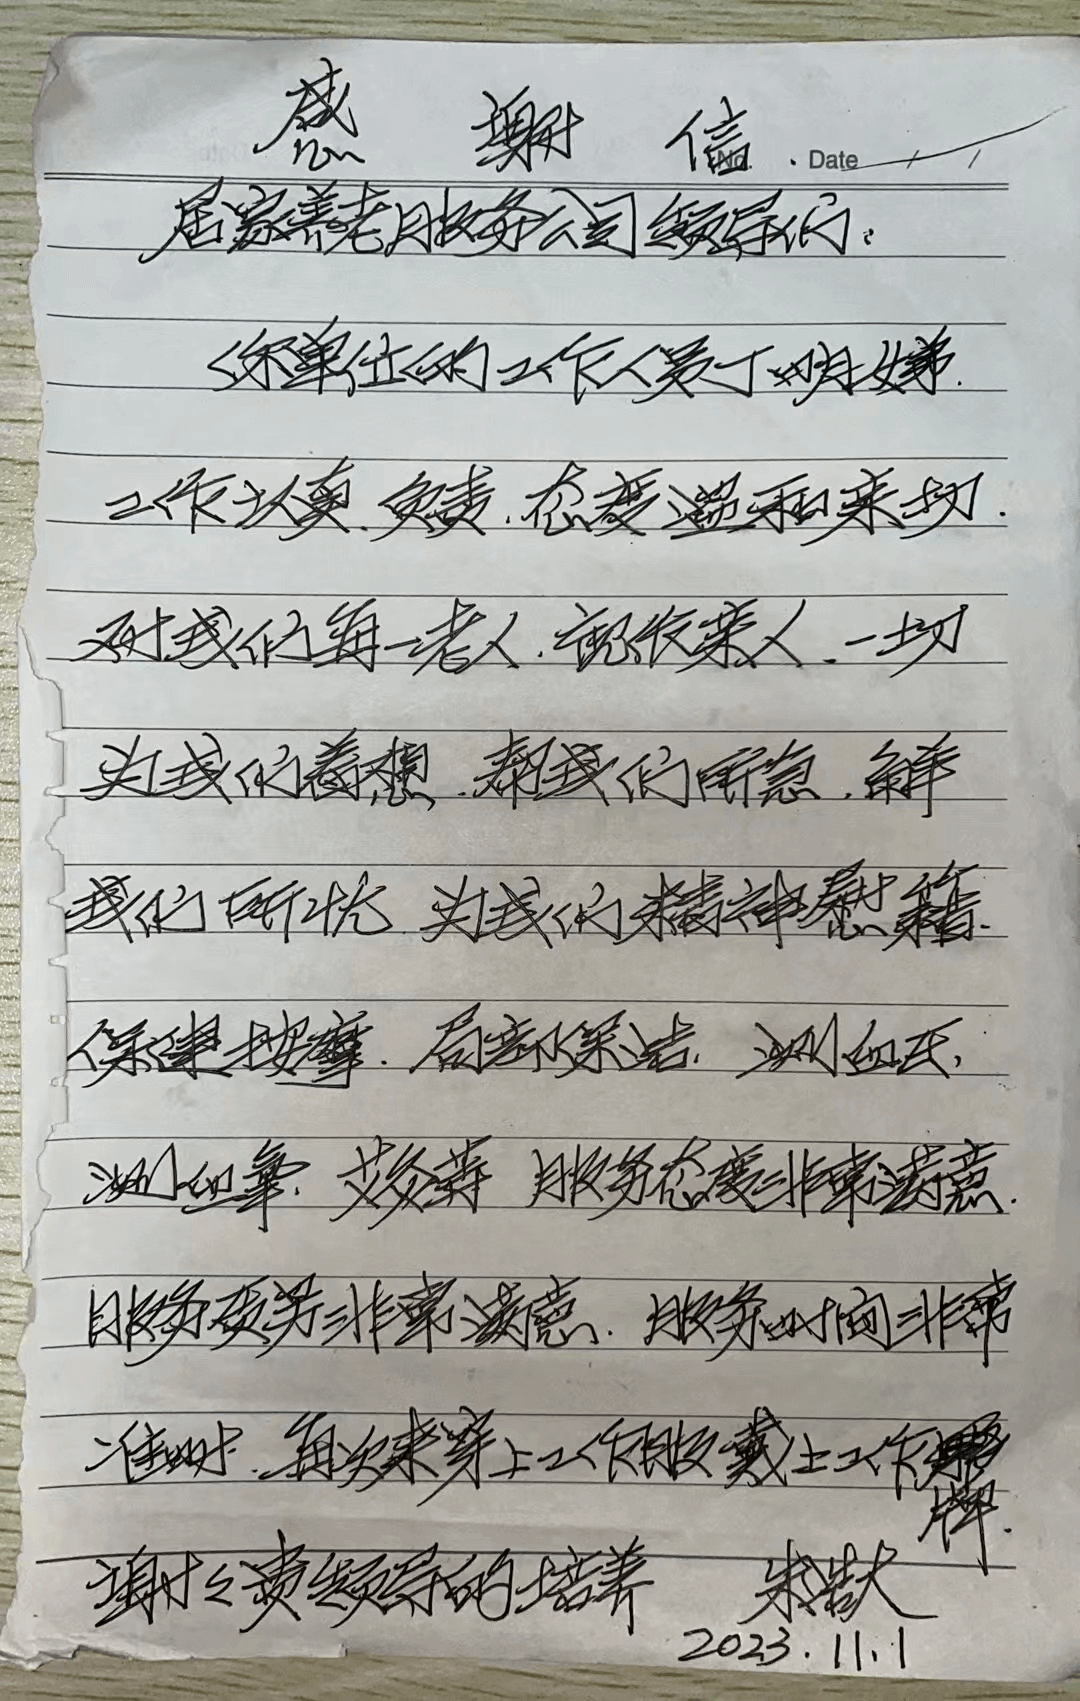 感谢信
No. Date / /
居家养老服务公司领导们:
你单位的工作人员丁明娣.
工作认真.负责.态度温和亲切.
对我们每一老人.视作亲人.一切
为我们着想.帮我们所急.解
我们所忧 为我们精神慰藉.
保健按摩.局部保洁.测血压,
测血氧.艾灸等 服务态度非常满意.
服务质量非常满意.服务时间非常
准时.每次来穿上工作服戴上工作
牌.
谢谢贵领导的培养 朱
2023.11.1